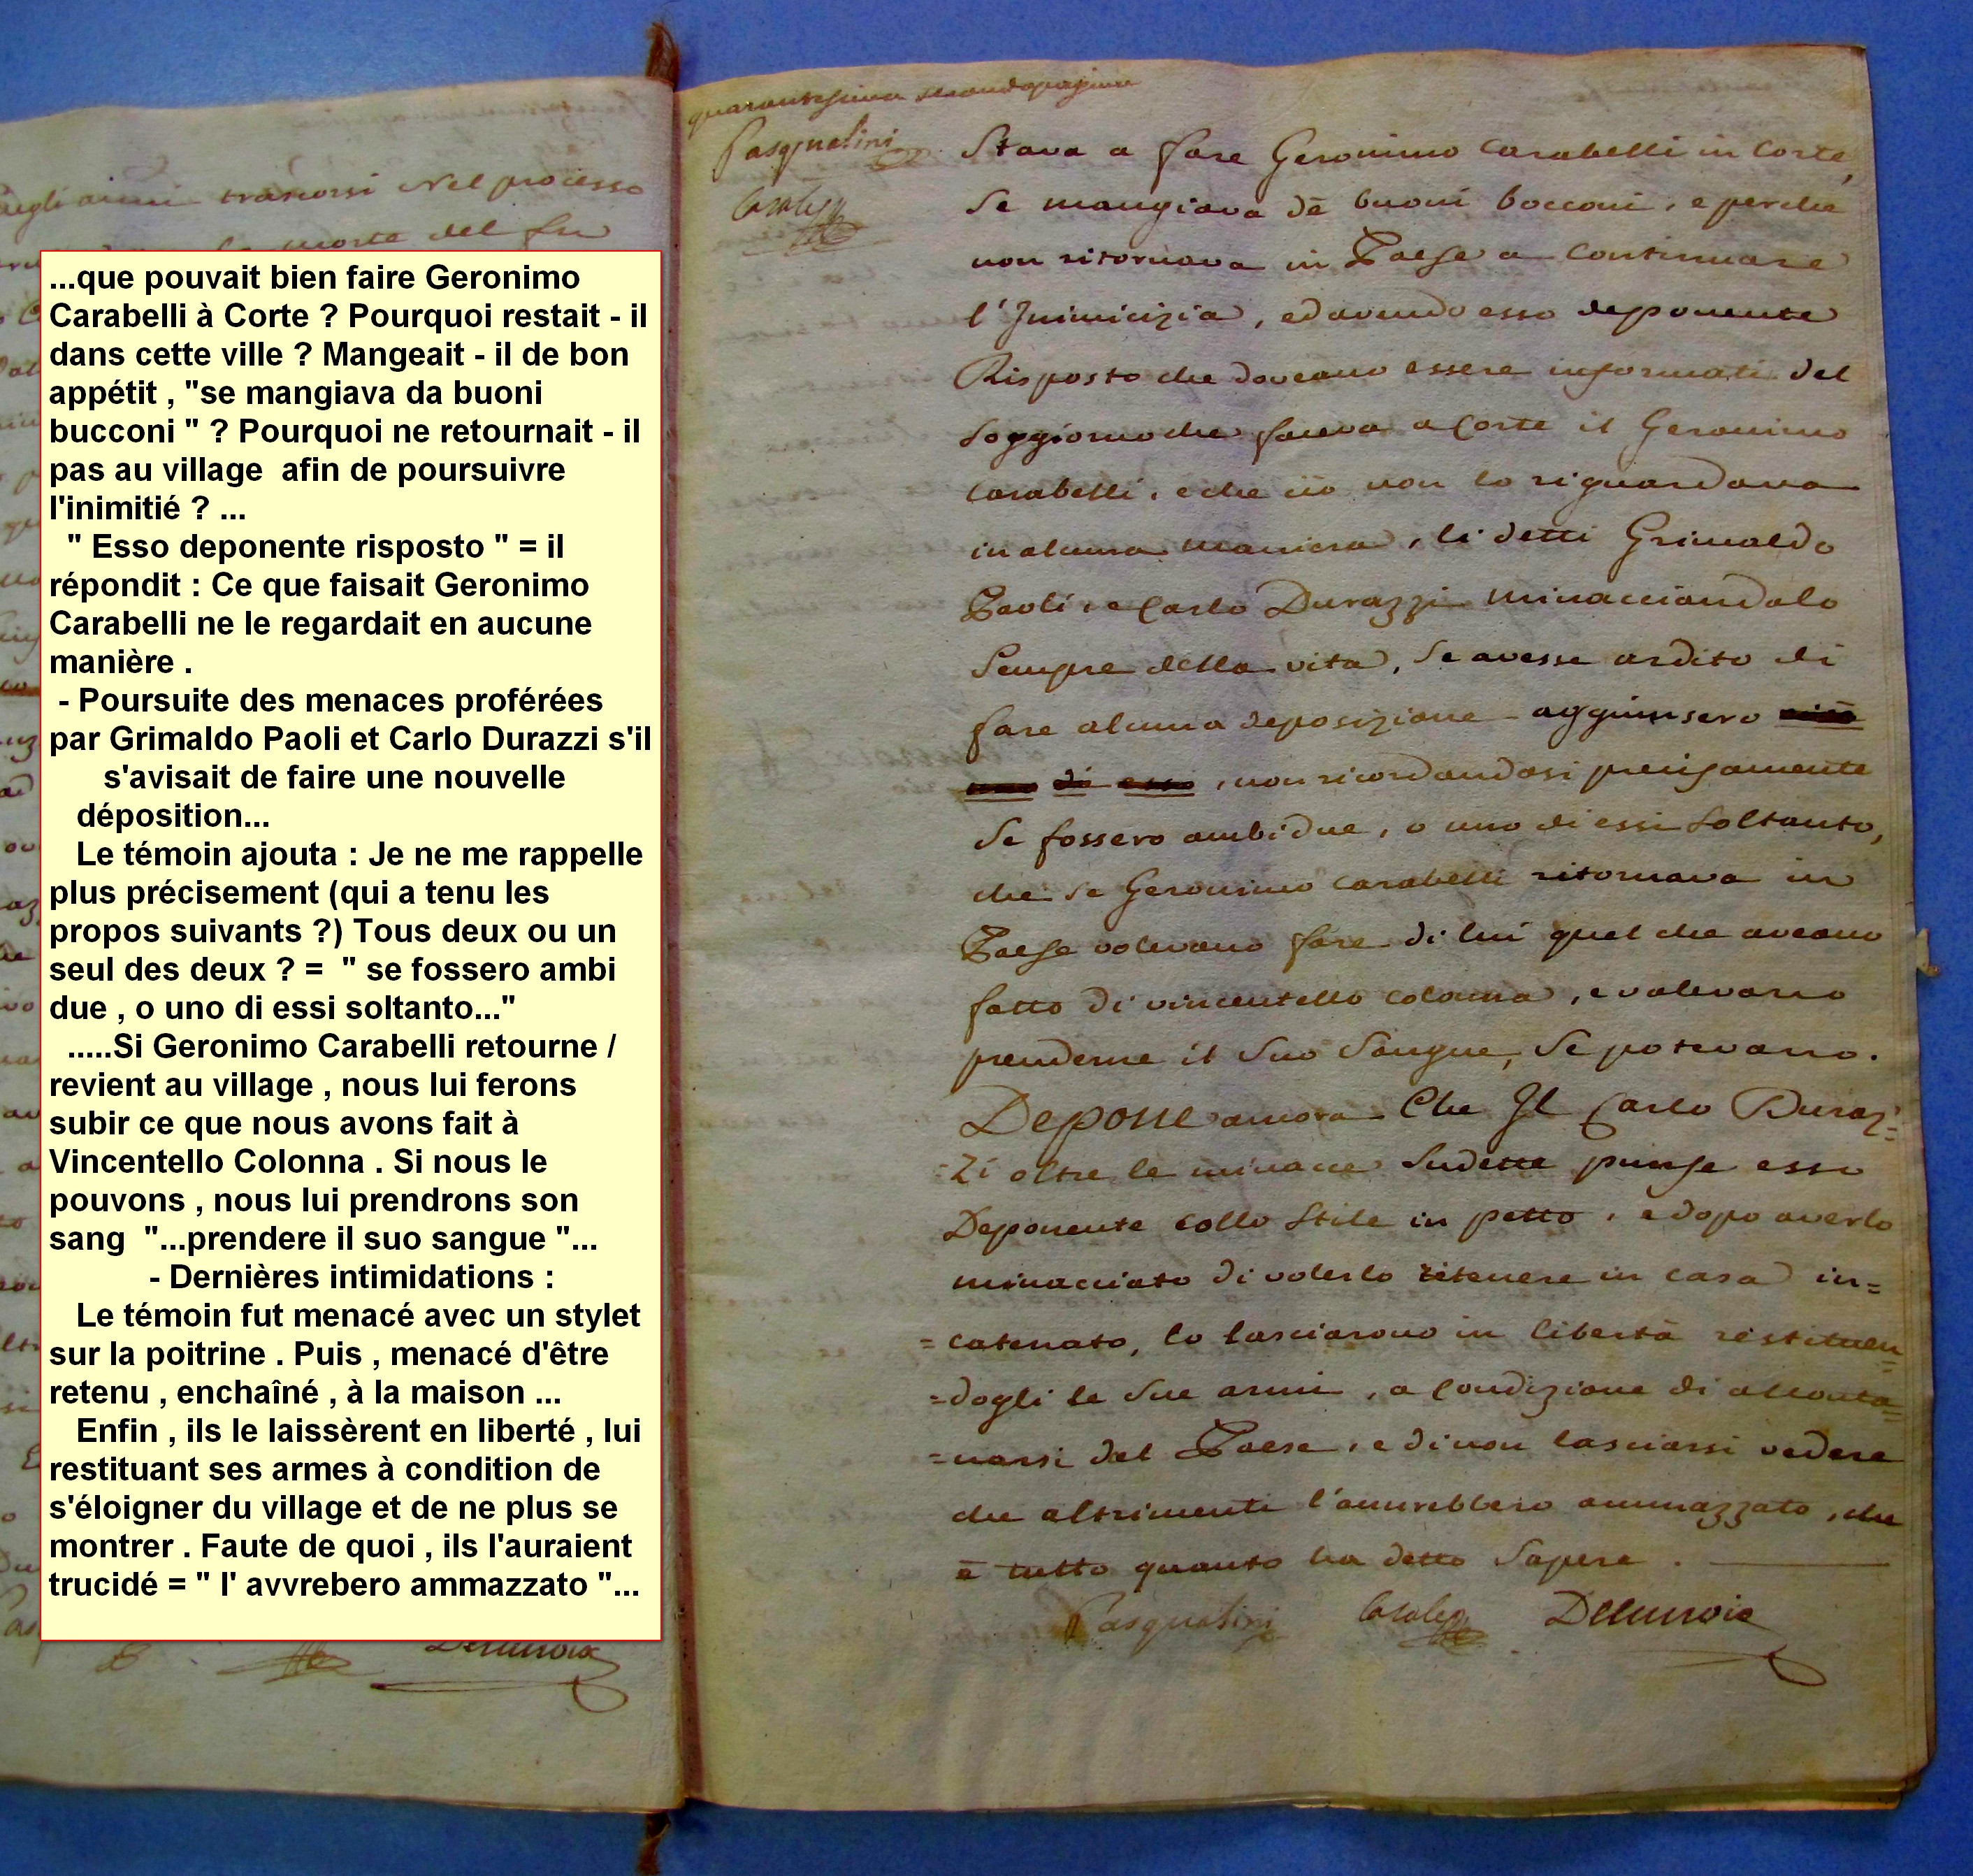 negli anni trascorsi Nel processo
morte del fu
...que pouvait bien faire Geronimo
Carabelli à Corte ? Pourquoi restait - il
dans cette ville ? Mangeait - il de bon
appétit , "se mangiava da buoni
bucconi " ? Pourquoi ne retournait - il
pas au village afin de poursuivre
l'inimitié ? ...
" Esso deponente risposto " = il
répondit : Ce que faisait Geronimo
Carabelli ne le regardait en aucune
manière .
- Poursuite des menaces proférées
par Grimaldo Paoli et Carlo Durazzi s'il
s'avisait de faire une nouvelle
déposition...
Le témoin ajouta : Je ne me rappelle
plus précisement (qui a tenu les
propos suivants ?) Tous deux ou un
seul des deux ? = " se fossero ambi
due , o uno di essi soltanto..."
.....Si Geronimo Carabelli retourne /
revient au village , nous lui ferons
subir ce que nous avons fait à
Vincentello Colonna . Si nous le
pouvons , nous lui prendrons son
sang "...prendere il suo sangue "...
- Dernières intimidations :
Le témoin fut menacé avec un stylet
sur la poitrine . Puis , menacé d'être
retenu , enchaîné , à la maison ...
Enfin , ils le laissèrent en liberté , lui
restituant ses armes à condition de
s'éloigner du village et de ne plus se
montrer . Faute de quoi , ils l'auraient
trucidé = " l' avvrebero ammazzato "...
Delacroix
quarantesima seconda pagina
Pasqualini
Stava a fare Geronimo Carabelli in Corte,
Se mangiava dè buoni bocconi, e perchè
non ritornava in Paese a Continuare
l'Inimicizia, ed avendo esso deponente
Risposto che doveano essere informati del
Soggiorno che faceva a Corte il Geronimo
Carabelli, e che ciò non lo riguardava
in alcuna maniera, li detti Grimaldo
Paoli, e Carlo Durazzi minacciandolo
Sempre della vita, Se avesse ardito di
fare alcuna deposizione aggiunsero
uno di essi, non ricordandosi precisamente
Se fossero ambidue, o uno di essi Soltanto,
che Se Geronimo Carabelli ritornava in
Paese volevano fare di lui quel che aveano
fatto di vincentello colonna, e volevano
prenderne il Suo Sangue, Se potevano.
Depone ancora Che Il Carlo Duraz=
=zi oltre le minacce Sudette punse esso
Deponente collo Stile in petto, e dopo averlo
minacciato di volerlo ritenere in casa in=
=catenato, lo lasciarono in libertà restituen=
=dogli le Sue armi, a Condizione di allonta=
=narsi dal Paese, e di non lasciarsi vedere
che altrimenti l'avvrebbero ammazzato, che
è tutto quanto ha detto Sapere.
Pasqualini Delacroix